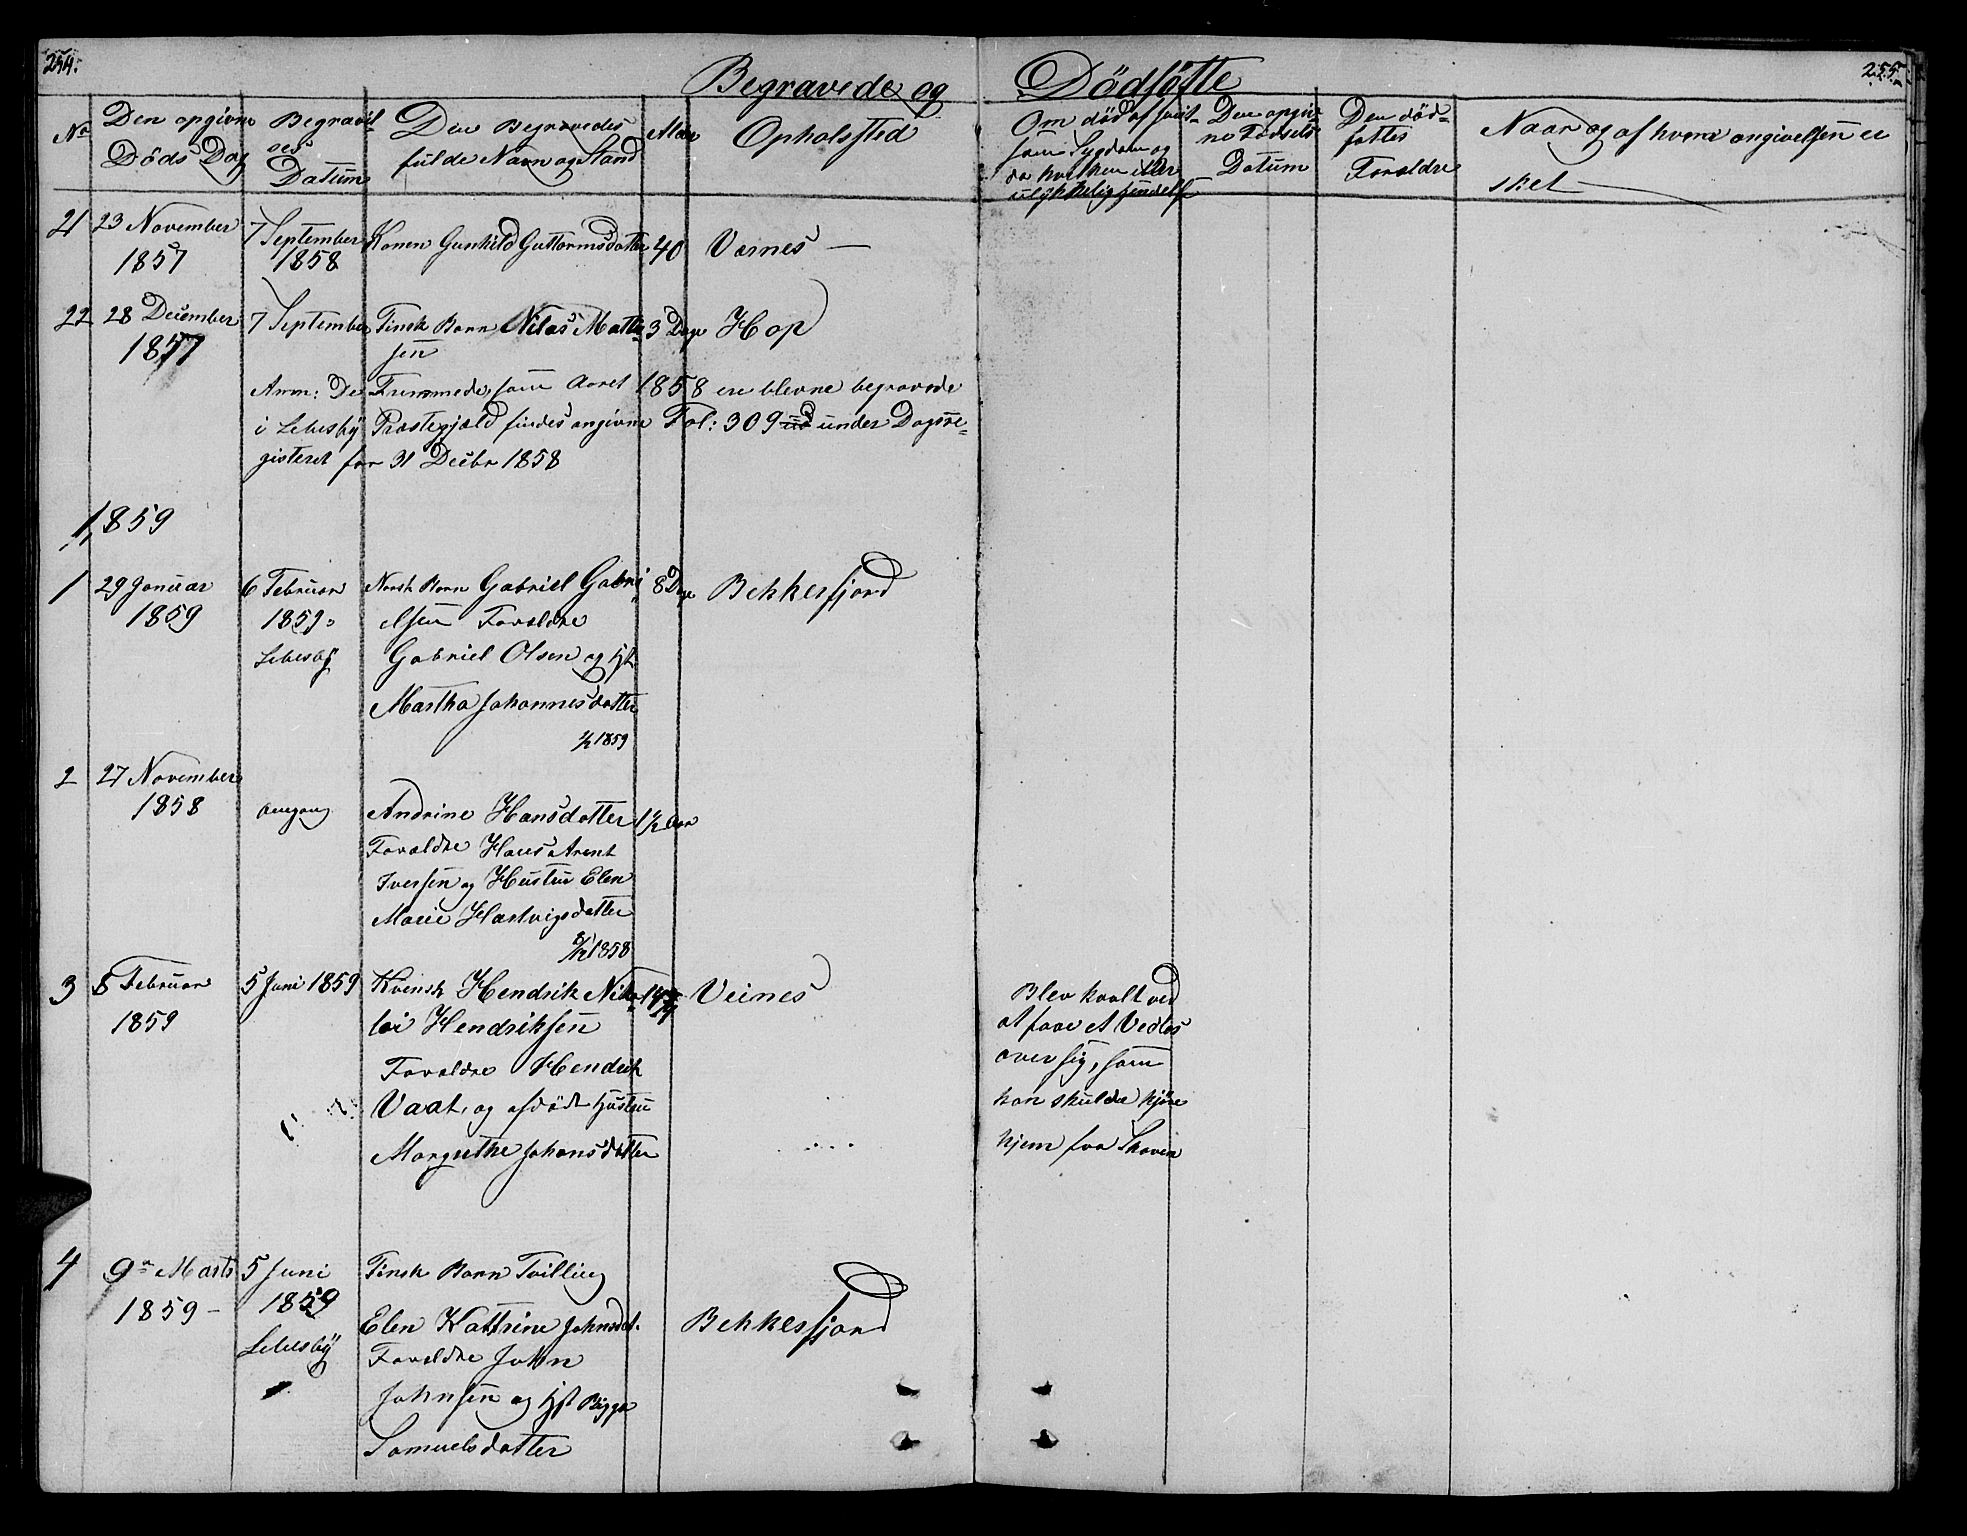 254.
255.
Begravede og Dödfötte
No
Den opgivne Döds Dag
Begravelses Datum
Den Begravedes fulde Navn og Stand
Alder
Opholsted
Om död af smitsom Sygdom og da hvilken eller ulykkelig hendelse
Den opgivne Fødsels Datum
Den dödföttes Forældre
Naar og af hvem angivelsen er skel
21 23 November 7 September Konen Gunhild Guttormsdatter 40 Veines
1857 1858
22 28 December 7 September Finsk Barn Nilas Matti 3 Dage Hop
1857 sen
Anm: De Fremmede, som Aaret 1858 ere blevne begravede
i Lebesby Præstegjeld findes angivne Fol: 309 under Dagsre=
gisteret for 31 Decbr 1858
1859
1 29 Januar 6 Februar Norsk Barn Gabriel Gabri 8 Dage Bekkerfjord
1859 1859 elsen Forældre
Lebesby Gabriel Olsen og Hst
Martha Johannesdatter
1/2 1859
2 27 November
1858 Omgang Andrine Hansdatter 1 1/2 Aar
Forældre Hans Arent
Iversen og Hustru Elen
Marie Hartvigsdatter
1858
3 8 Februar 5 Juni 1859 Kvensk Hendrik Niko Veines Blev kvalt ved
1859 lai Hendriksen at faae et Vedlas
Forældre Hendrik over sig, som
Vaat, og afdöde Hustru han skulde kjöre
Margrethe Johansdatter hjem fra Skoven
4 9n Marts 5 Juni Finsk Barn Tvilling
1859 1859 Elen Kattrine Johnsdt. Bekkerfjord
Lebesby Forældre John
Johnsen og Hst Bigga
Samuelsdatter